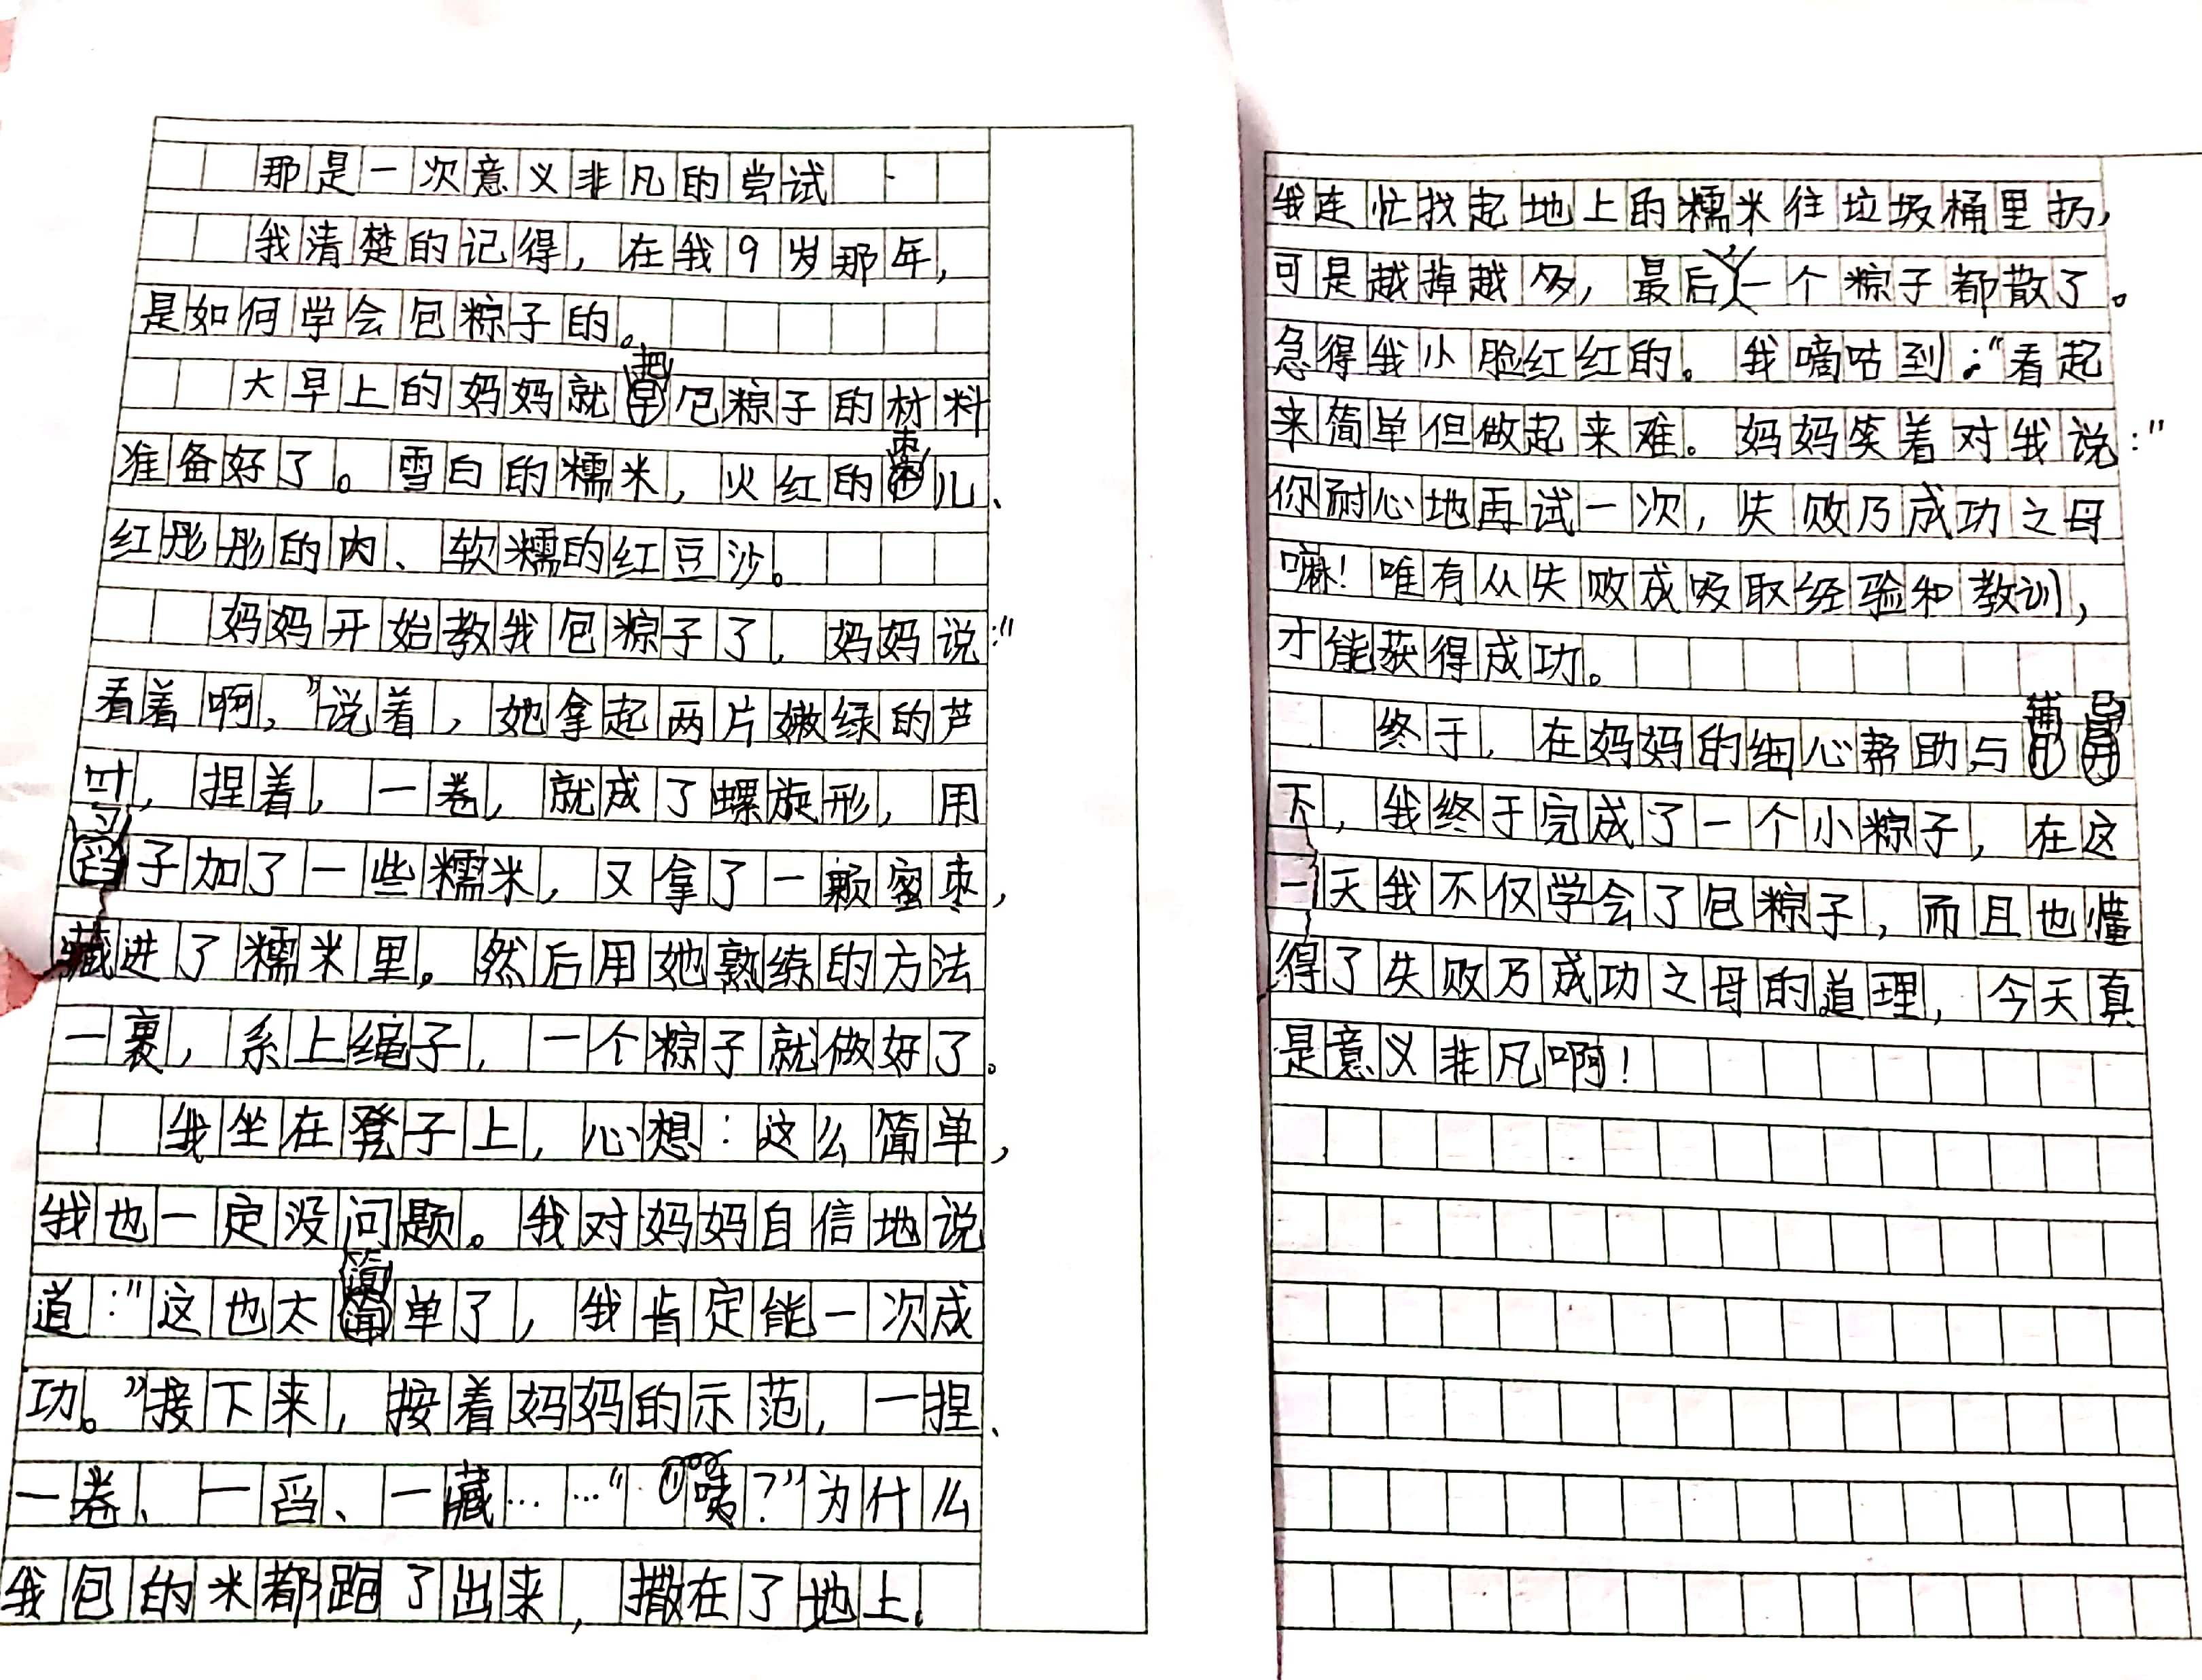 那是一次意义非凡的尝试
我清楚的记得，在我9岁那年，
是如何学会包粽子的。
大早上的妈妈就把包粽子的材料
准备好了。雪白的糯米，火红的枣儿、
红彤彤的肉、软糯的红豆沙。
妈妈开始教我包粽子了，妈妈说："
看着啊，"说着，她拿起两片嫩绿的芦
叶，捏着，一卷，就成了螺旋形，用
勺子加了一些糯米，又拿了一颗蜜枣，
藏进了糯米里。然后用她熟练的方法
一裹，系上绳子，一个粽子就做好了。
我坐在凳子上，心想：这么简单，
我也一定没问题。我对妈妈自信地说
道："这也太简单了，我肯定能一次成
功。"接下来，按着妈妈的示范，一捏、
一卷、一舀、一藏……"咦？"为什么
我包的米都跑了出来，撒在了地上。
我连忙找起地上的糯米往垃圾桶里扔，
可是越掉越多，最后一个粽子都散了。
急得我小脸红红的。我嘀咕到："看起
来简单但做起来难。妈妈笑着对我说："
你耐心地再试一次，失败乃成功之母
嘛！唯有从失败成吸取经验和教训，
才能获得成功。
终于，在妈妈的细心帮助与辅导
下，我终于完成了一个小粽子，在这
一天我不仅学会了包粽子，而且也懂
得了失败乃成功之母的道理，今天真
是意义非凡啊！